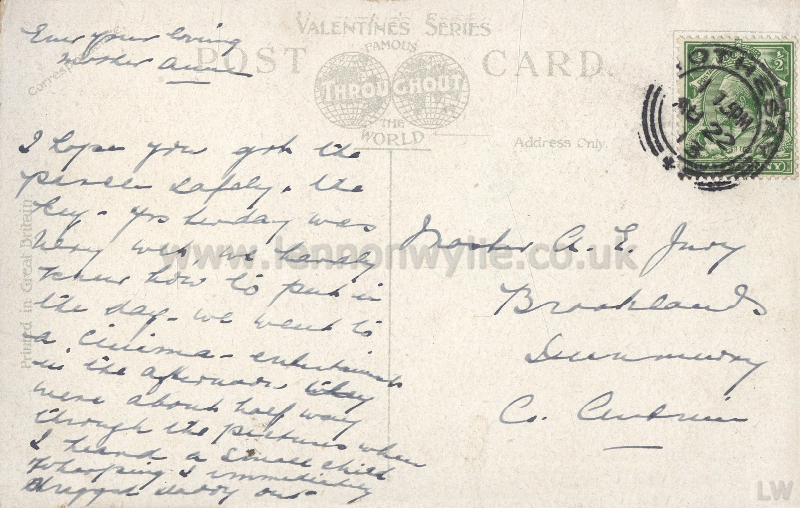 Ever your loving
Mother Annie
VALENTINE'S SERIES
POST CARD.
FAMOUS
THROUGHOUT
THE
WORLD
Address Only.
Printed in Great Britain
I hope you got the
parcel safely & the
key - yesterday was
very wet, we hardly
knew how to put in
the day - we went to
a cinema - entertainment
in the afternoon, they
were about half way
through the pictures when
I heard a small child
whooping & immediately
dragged daddy out -
Master A. E. Jury
Brooklands
Dunmurry
Co. Antrim
ROTHESAY
1.50PM
22
1/2
www.lennonwylie.co.uk
LW